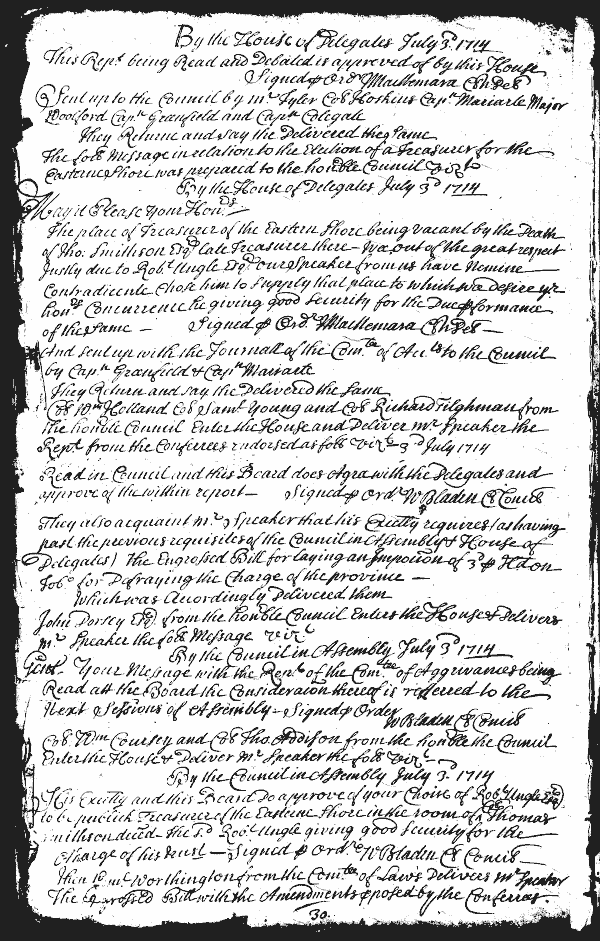 By the House of Delegates July 3d. 1714
This Rept. being Read and Debated is approved of by this House
Signed p Ordr. MacNemara Cl
Sent up to the Council by mr. Tyler Col Hoskins Capt. Mariarte Major
Woolford Capt. Greenfield and Capt.
They Return and say the Delivered the same
The foll. Message in relation to the Election of a Treasurer for the
Easterne Shore was prepared to the honble Council vizt.
By the House of Delegates July 3d 1714
May it Please your Honrs.
The place of Treasurer of the Eastern Shore being vacant by the Death
of Tho. Smithson Esqr. late Treasurer there We out of the great respect
Justly due to Robt. Ungle Esqr. our Speaker from us have Nemine
Contradicente Chose him to Supply that place to which wee desire yr.
honrs. Concurrence he giving good Security for the Due pformance
of the same — Signed p Ordr. MacNemara Cl
And sent up with the Journall of the Comtee of Accts to the Council
by Capt. Greenfield & Capt Mariarte
They Return and say the Delivered the Same
Col Wm. Holland Col Saml. Young and Col Richard Tilghman from
the honble Council Enter the House and Deliver mr. Speaker the
Rept. from the Conferrees endorsed as foll vizt. 3d July 1714
Read in Council and this Board does Agree with the Delegates and
approve of the within report — Signed p Ordr. W Bladen Cl Concil
They also acquaint mr. Speaker that his Exctty requires (as having
past the previous requisites of the Council in Assembly & House of
Delegates) the Engrossed Bill for laying an Imposition of 3d p Hd on
Tobo. for Defraying the Charge of the province —
Which was Accordingly Delivered them
John Dorsey Esqr. from the honble Council Enters the House & Delivers
mr. Speaker the foll Message vizt.
By the Council in Assembly July 3d 1714
Gent. Your Message with the Rept. of the Comtee of Aggrivances being
Read att the Board the Consideraion thereof is referred to the
Next Sessions of Assembly — Signed p Order
W Bladen Cl Concil
Col. Wm Coursey and Col Tho. Addison from the honble the Council
Enter the House & Deliver mr. Speaker the foll vizt.
By the Council in Assembly July 3d. 1714
His Exctty and this Board do approve of your Choice of Robt. Ungle Esqr.
to be publick Treasurer of the Easterne Shore in the room of Thomas
Smithson deced. the sd Robt. Ungle giving good Security for the
Charge of his trust — Signed p Ordr. W Bladen Cl Concil
Then mr. Worthington from the Comtee of Laws Delivers mr Speaker
The Engrossed Bill with the Amendments pposed by the Conferrees.
30